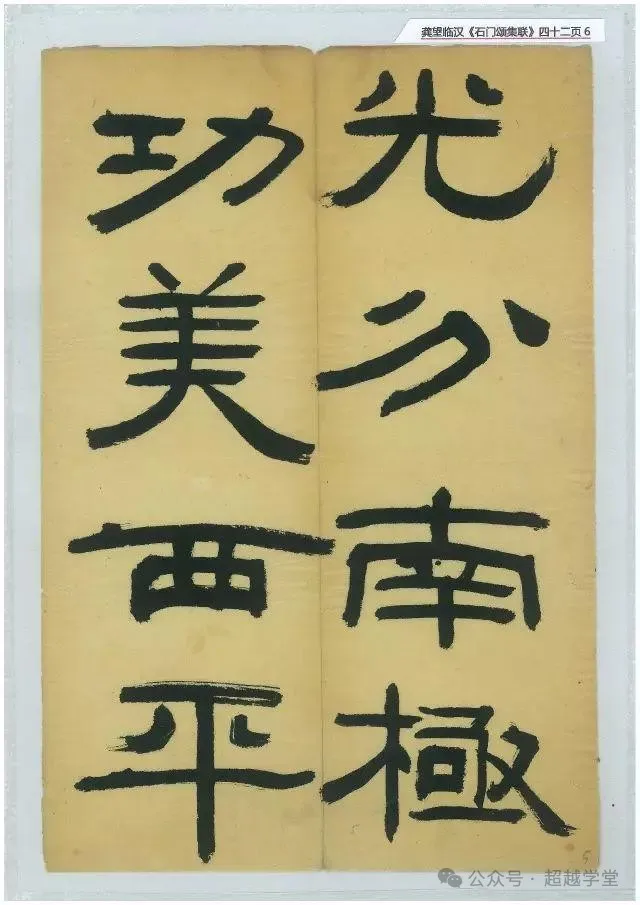 龚望临汉《石门颂集联》四十二页6
光分南極
功美西平
公众号·超越学堂